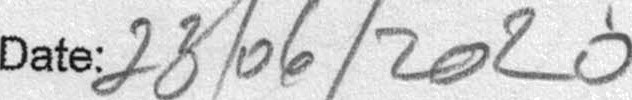 Date: 23/06/2020